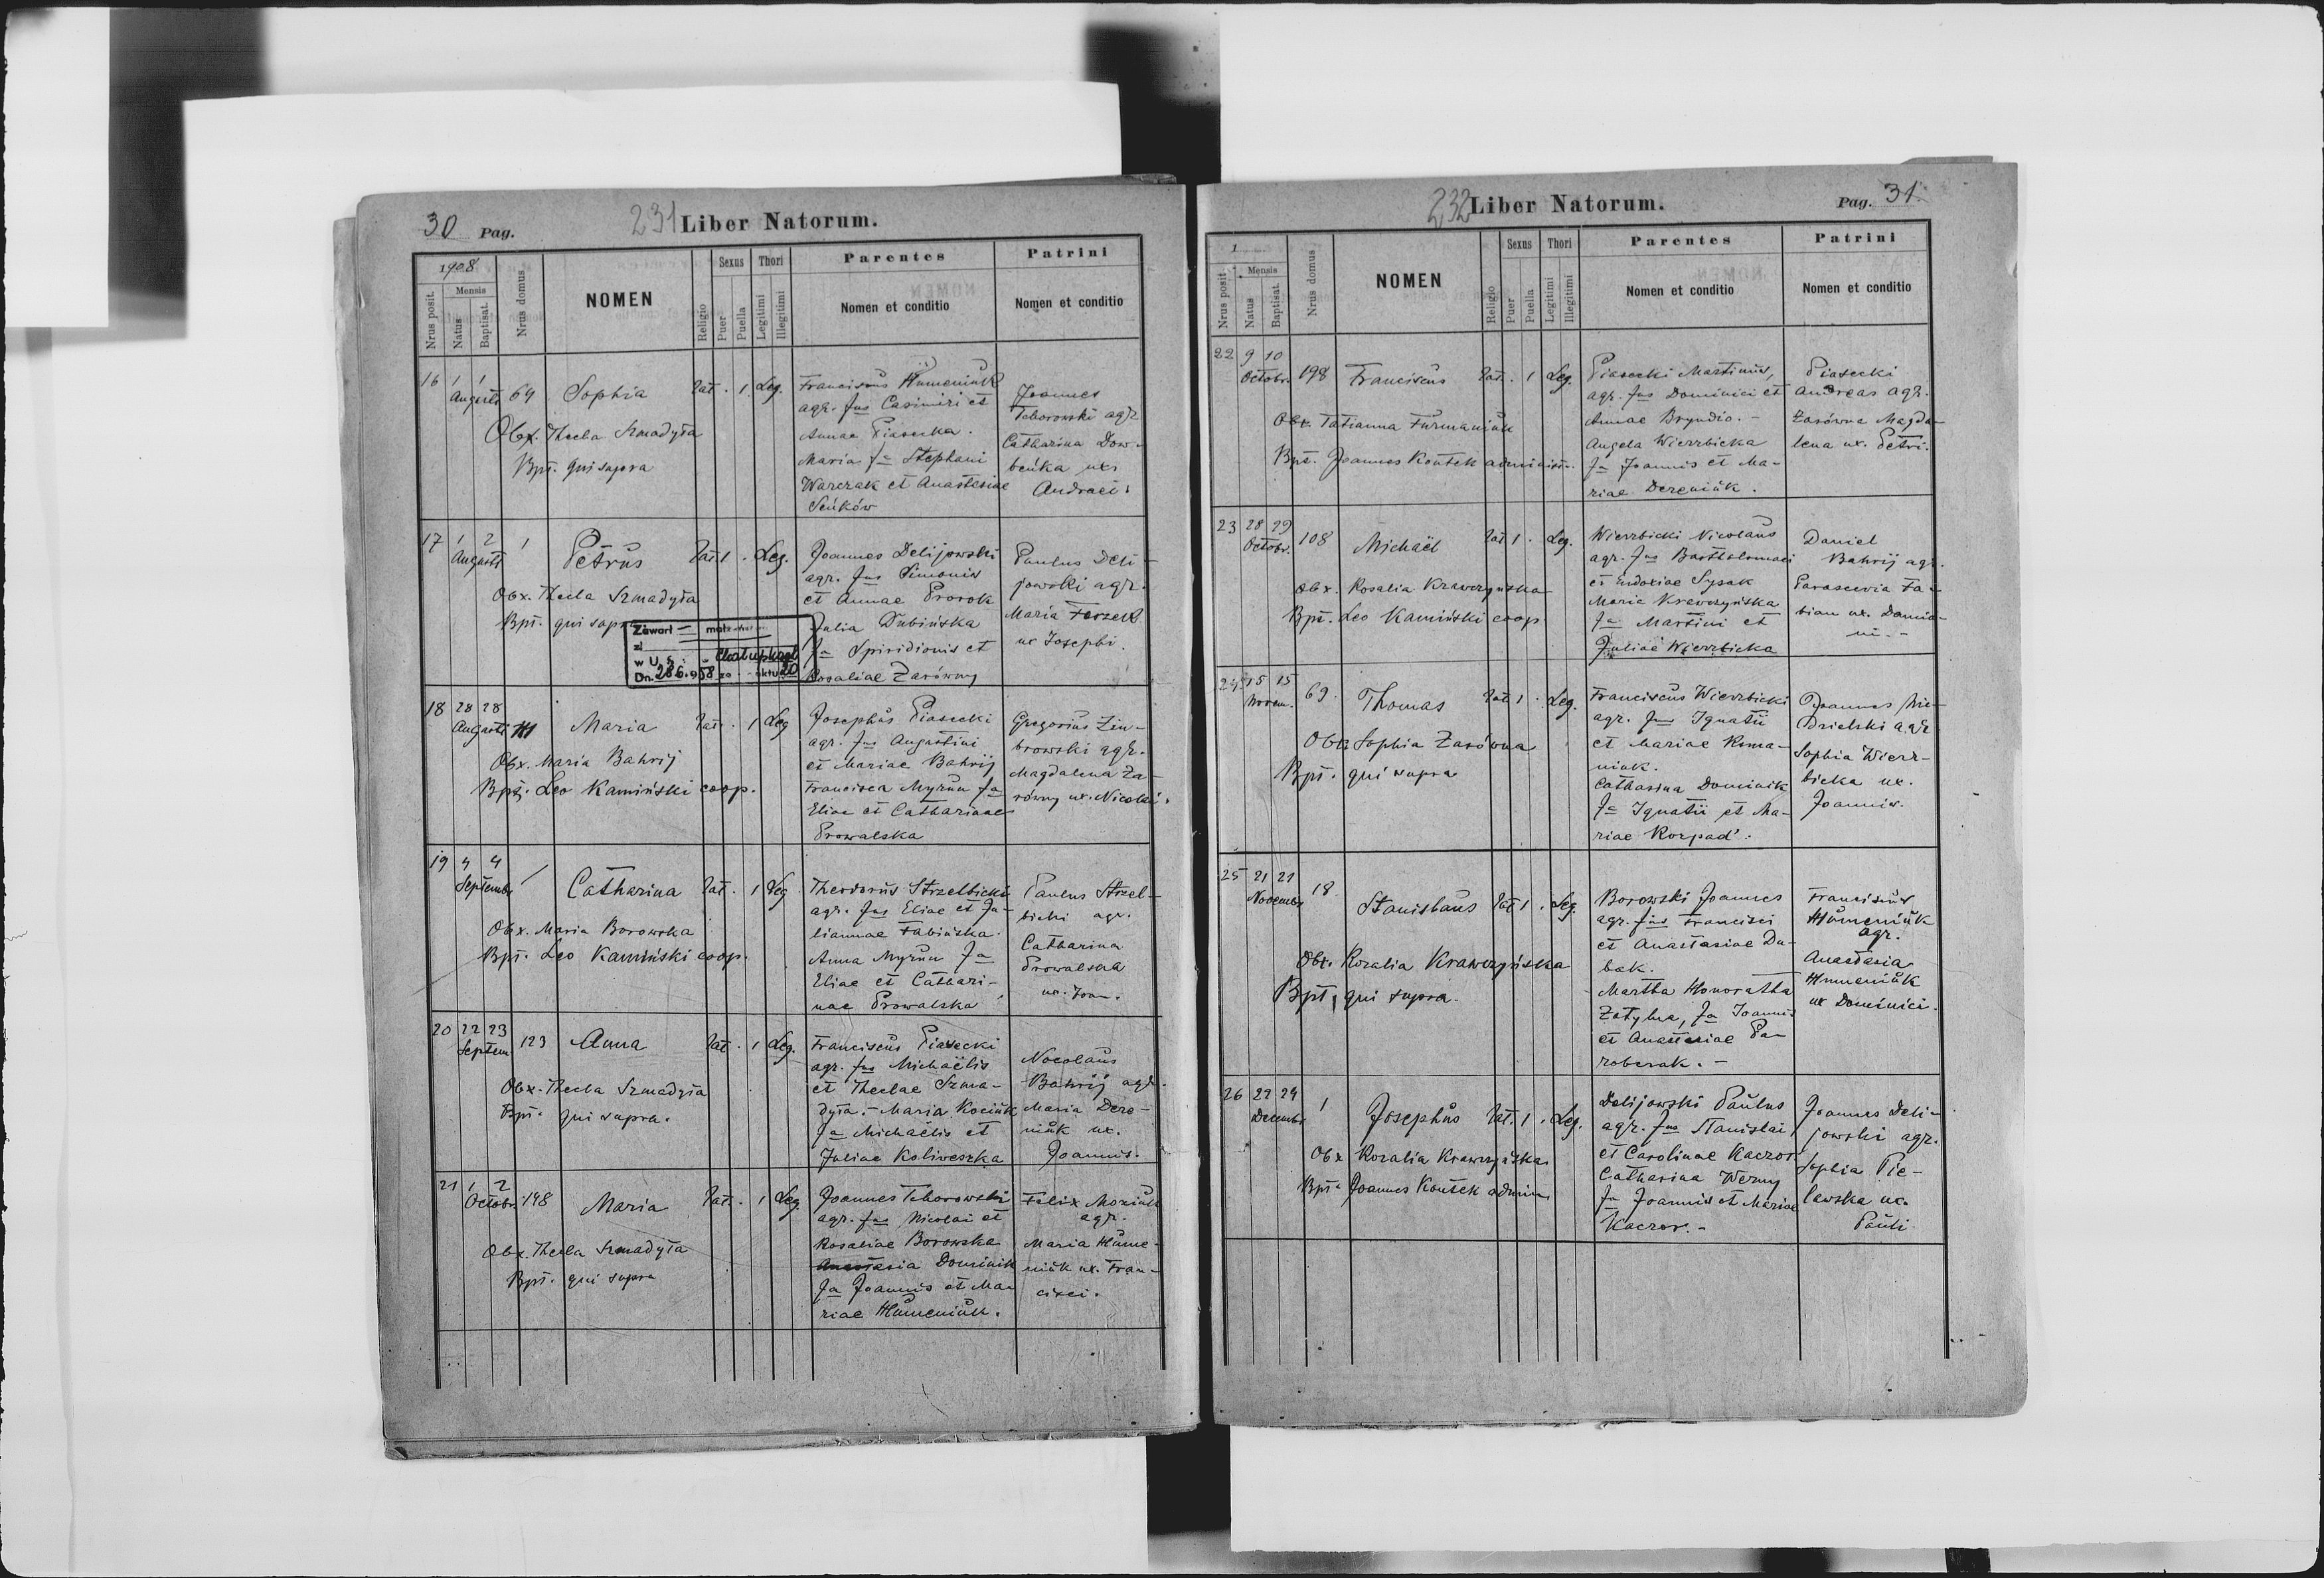 30 Pag. 231 Liber Natorum.
1908
Mensis
Nrus posit.
Natus
Baptisat.
Nrus domus
NOMEN
Religio
Sexus
Puer
Puella
Thori
Legitimi
Illegitimi
Parentes
Nomen et conditio
Patrini
Nomen et conditio
16 1 1 Augusti 69 Sophia Lat. . 1 Leg.
Obx. Thecla Szmadyła
Bpt. qui supra
Franciscus Humeniuk
agr. fus Casimiri et
Annae Piasecka.
Maria fa Stephani
Warczak et Anastasiae
Seńków
Joannes
Tchorowski agr
Catharina Dow-
beńka ux.
Andreei.
17 1 2 Augusti 1 Petrus Lat. 1 . Leg.
Obx. Thecla Szmadyła
Bpt. qui supra
Zawarł
w U.S. Chałupkach
Dn. 28.6.958 aktu 20
Joannes Delijowski
agr. fus Simonis
et Annae Prorok
Julia Dubińska
fa Spiridionis et
Rosaliae Zarówny
Paulus Deli-
jowski agr.
Maria
ux Josephi.
18 28 28 Augusti Maria Lat. . 1 Leg
Obx. Maria Bahrij
Bpt. Leo Kamiński coop.
Josephus Piasecki
agr. fus Augustini
et Mariae Bahrij
Francisca Myrun fa
Eliae et Catharinae
Prowalska
Gregorius Zin-
browski agr.
Magdalena Za-
równy ux. Nicolai.
19 4 4 Septembr 1 Catharina Lat. . 1 Leg
Obx. Maria Borowska
Bpt. Leo Kamiński coop.
Theodorus Strzelbicki
agr. fus Eliae et Ju-
liannae Fabińska.
Anna Myrun fa
Eliae et Cathari-
nae Prowalska
Paulus Strzel-
bicki agr.
Catharina
Prowalska
ux. Joan.
20 22 23 Septem 123 Anna Lat . 1 Leg.
Obx. Thecla Szmadyła
Bpt. qui supra.
Franciscus Piasecki
agr. fus Michaëlis
et Theclae Szma-
dyła. - Maria Kociuk
fa Michaëlis et
Juliae Koliweszka
Nocolaus
Bahrij agr.
Maria Dere-
niuk ux.
Joannis.
21 1 2 Octobr. 148 Maria Lat. . 1 Leg.
Obx. Thecla Szmadyła
Bpt. qui supra
Joannes Tchorowski
agr. fus Nicolai et
Rosaliae Borowska
Anastasia Dominik
fa Joannis et Ma-
riae Humeniuk.
Felix Moziuk
agr.
Maria Hume-
niuk ux. Fran-
cisci.
232 Liber Natorum. Pag. 31.
1
Mensis
Nrus posit.
Natus
Baptisat.
Nrus domus
NOMEN
Religio
Sexus
Puer
Puella
Thori
Legitimi
Illegitimi
Parentes
Nomen et conditio
Patrini
Nomen et conditio
22 9 10 Octobr. 198 Franciscus Lat. . 1 Leg.
Obx. Tatianna Furmaniuk
Bpt. Joannes Koutek administr.
Piasecki Martinus,
agr. fus Dominici et
Annae Bryndio. -
Angela Wierzbicka
fa Joannis et Ma-
riae Dereniuk.
Piasecki
Andreas agr.
Zarówna Magda-
lena ux. Petri.
23 28 29 Octobr. 108 Michaël Lat 1 . Leg.
Obx. Rosalia Krawczyńska
Bpt. Leo Kamiński coop.
Wierzbicki Nicolaus
agr. fus Bartholomaei
et Eudoxiae Sysak
Maria Krawczyńska
fa Martini et
Juliae Wierzbicka
Daniel
Bahrij agr.
Parascevia Fa-
bian ux. Damia-
ni. -
24 15 15 Novem. 69. Thomas Lat 1 . Leg.
Obx. Sophia Zarówna
Bpt. qui supra
Franciscus Wierzbicki
agr. fus Ignatii
et Mariae Roma-
niuk.
Catharina Dominik
fa Ignatii et Ma-
riae Korpad.
Joannes Nie-
dzielski agr
Sophia Wierz-
bicka ux.
Joannis.
25 21 21 Novembr 18 Stanislaus Lat 1 . Leg.
Obx. Rozalia Krawczyńska
Bpt. qui supra.
Borowski Joannes
agr. fus Francisci
et Anastasiae Du-
bak.
Martha Honoratha
Zatylna, fa Joannis
et Anastasiae Pa-
roberak. -
Franciscus
Humeniuk
agr.
Anastasia
Humeniuk
ux Dominici.
26 22 24 Decembr 1 Josephus Lat. 1 . Leg.
Obx Rozalia Krawczyńska
Bpt. Joannes Koutek admin.
Delijowski Paulus
agr. fus Stanislai
et Carolinae Kaczor
Catharina Werny
fa Joannis et Mariae
Kaczor. -
Joannes Deli-
jowski agr.
Sophia Pie-
lawska ux.
Pauli